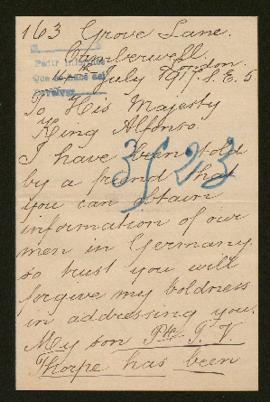 163 Grove Lane.
Camberwell.
London.
July 1917 S.E.5
Pedir
Que
To His Majesty
King Alfonso.
I have been told
3523
by a friend that
you can obtain
information of our
men in Germany
so trust you will
forgive my boldness
in addressing you.
My son Pte T. V.
Thorpe has been